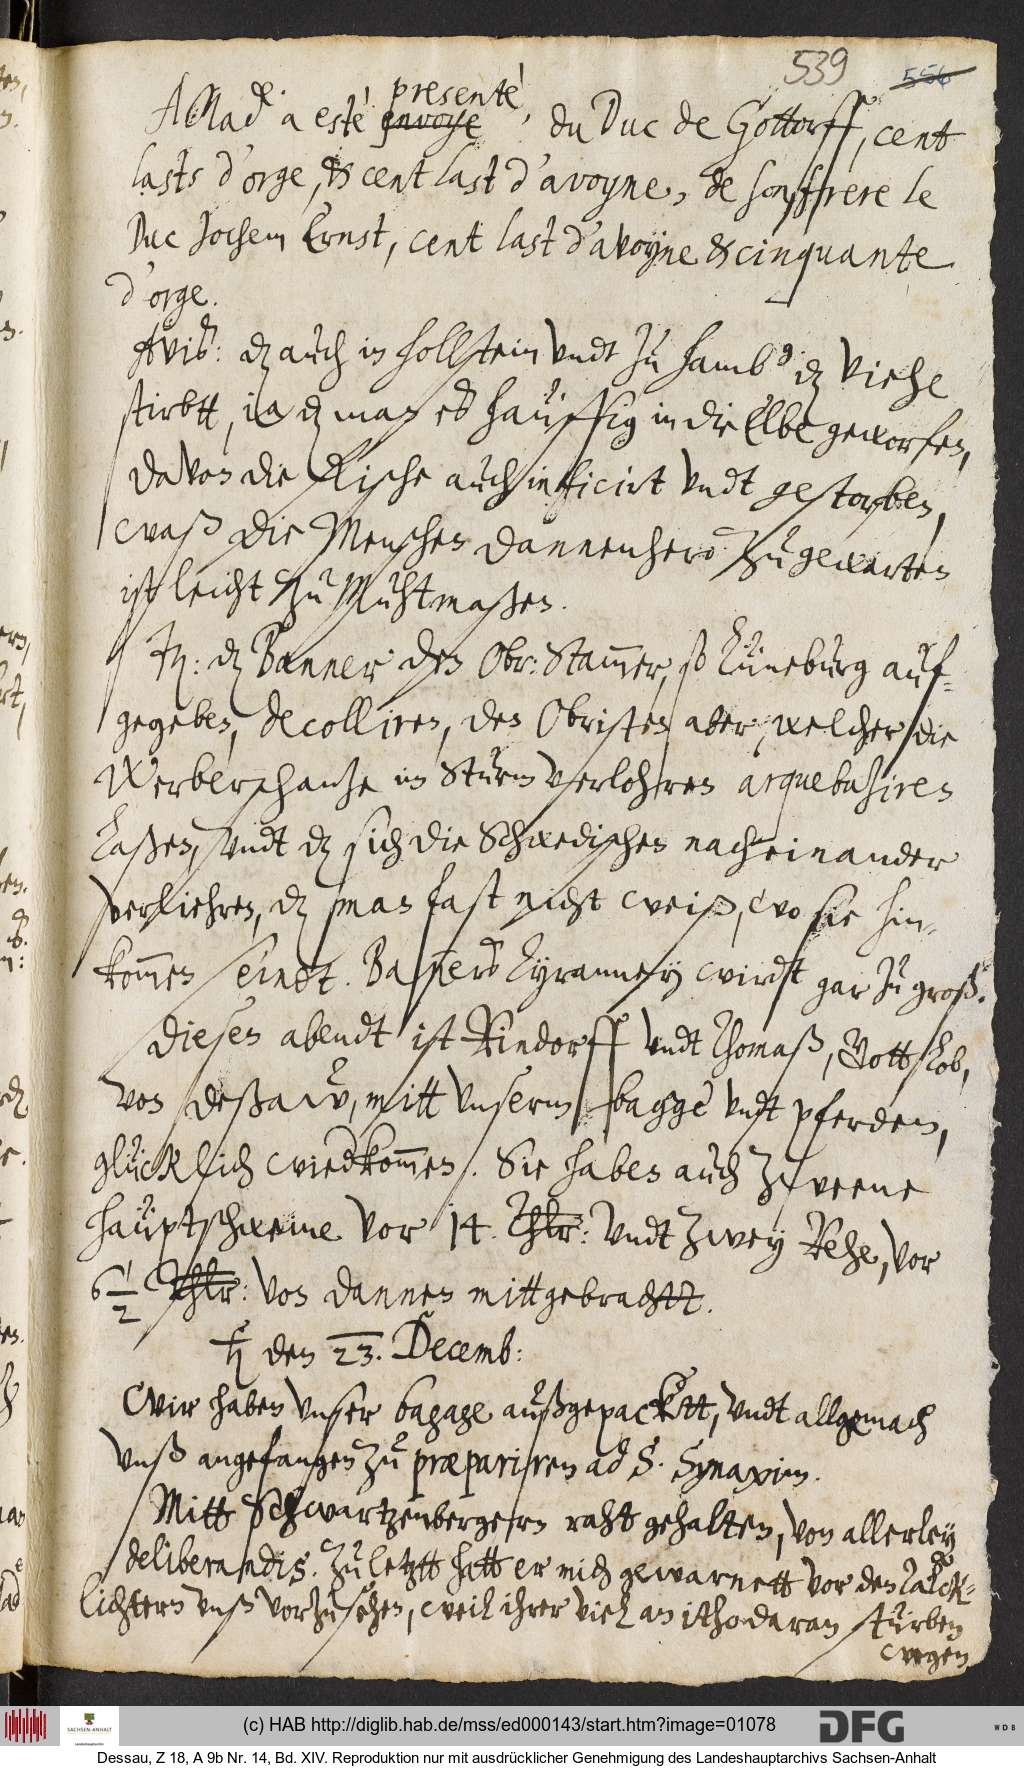 539 556
A Mad.e a esté envoyé presenté, du Duc de Gottorff, cent
lasts d'orge, & cent last d'avoyne, de son frere le
Duc Jochem Ernst, cent last d'avoyne & cinquante
d'orge.
Avis: dz auch in Hollstein vndt zu Hamb.g dz viehe
stirbtt, ia dz man es haüffig in die Elbe geworfen,
davon die Fische auch inficirt vndt gestorben,
waß die Menschen dannenhero zu gewarten
ist leicht zu Muhtmaßen.
It: dz Banner den Obr: Stammer, so Lüneburg auf-
gegeben, decolliren, den Obristen aber, welcher die
Werberschantze im Sturm verlohren arquebusiren
laßen, vndt dz sich die Schwedischen nacheinander
verliehren, dz man fast nicht weiß, wo sie hin-
kommen seindt. Banners Tyranney wirdt gar zu groß.
Diesen abendt ist Rindorff vndt Thomaß, Gott lob,
von deßaw, mitt vnserm bagge vndt pferden,
glücklich wiedkommen. Sie haben auch zweene
haüptschweine vor 14. Thlr: vndt zwey Rehe, vor
6 1/2 Thlr: von dannen mittgebrachtt.
♄ den 23. Decemb:
Wir haben vnser bagage außgepacktt, vndt allgemach
vnß angefangen zu præpariren ad S. Synaxin.
Mitt Schwartzenbergern raht gehalten, von allerley
deliberandis. Zu letztt hatt er mich gewarnett vor den Talck-
lichtern vnß vorzusehen, weil ihrer viel an itzo daran stürben
wegen
(c) HAB http://diglib.hab.de/mss/ed000143/start.htm?image=01078
SACHSEN-ANHALT
DFG
WDB
Dessau, Z 18, A 9b Nr. 14, Bd. XIV. Reproduktion nur mit ausdrücklicher Genehmigung des Landeshauptarchivs Sachsen-Anhalt